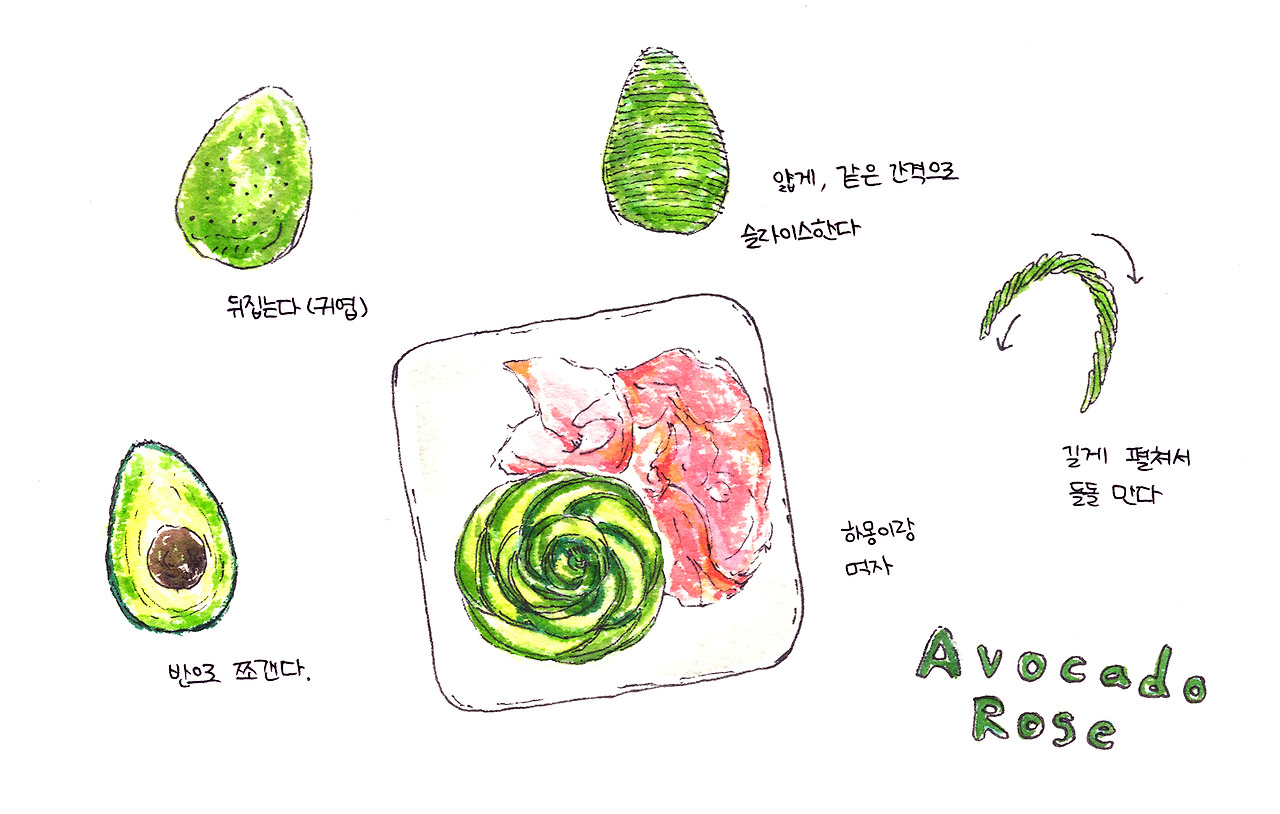 얇게, 같은 간격으로
슬라이스한다
뒤집는다 (귀엽)
길게 펼쳐서
돌돌 만다
하몽이랑
먹자
반으로 쪼갠다.
Avocado
Rose